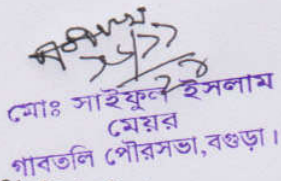 মোঃ সাইফুল ইসলাম
মেয়র
গাবতলি পৌরসভা,বগুড়া।